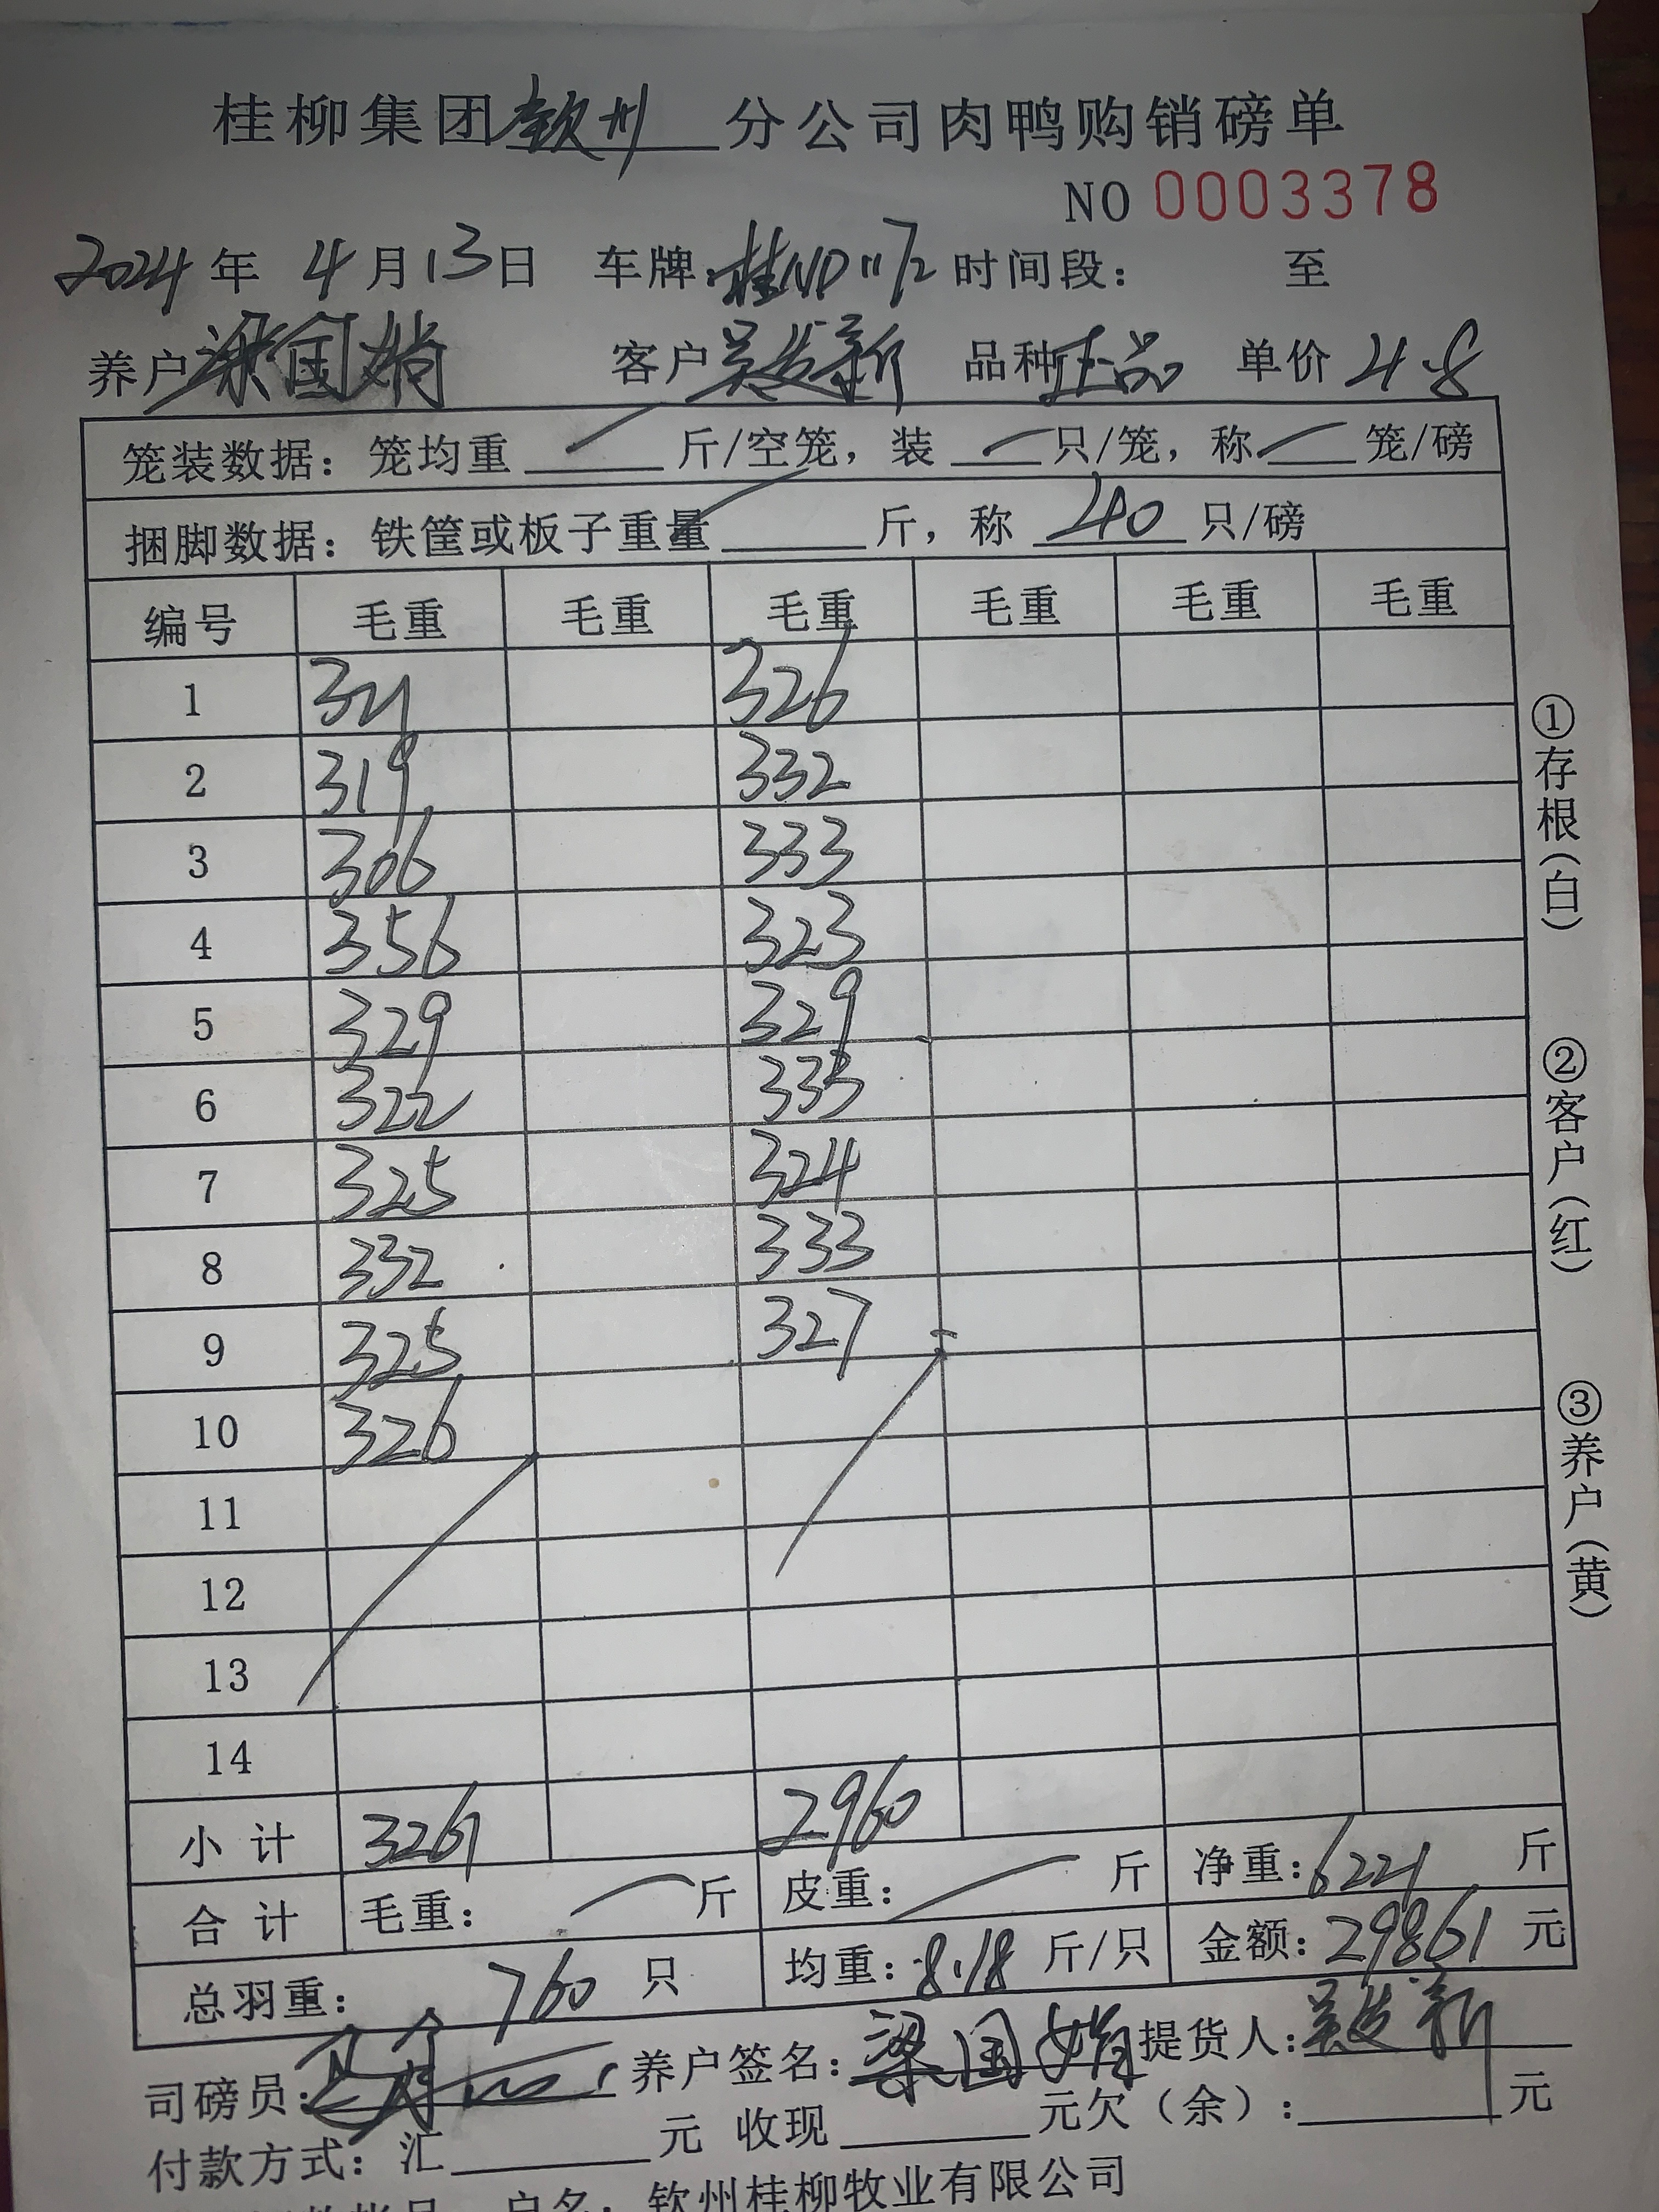 桂柳集团钦州分公司肉鸭购销磅单
NO 0003378
2024年 4月13日 车牌:桂ND1172 时间段: 至
养户梁国娟 客户吴发新 品种正品 单价4.8
笼装数据:笼均重 斤/空笼,装 只/笼,称 笼/磅
捆脚数据:铁筐或板子重量 斤,称 240 只/磅
编号 毛重 毛重 毛重 毛重 毛重 毛重
1 321 326
2 319 332
3 306 333
4 356 323
5 329 329
6 322 333
7 325 324
8 332 333
9 325 327
10 326
11
12
13
14
小计 3261 2960
合计 毛重: 斤 皮重: 斤 净重:6221 斤
总羽重: 760 只 均重:8.18 斤/只 金额:29861 元
司磅员: 养户签名:梁国娟 提货人:吴发新
付款方式:汇 元 收现 元欠(余): 元
户名:钦州桂柳牧业有限公司
①存根(白)
②客户(红)
③养户(黄)